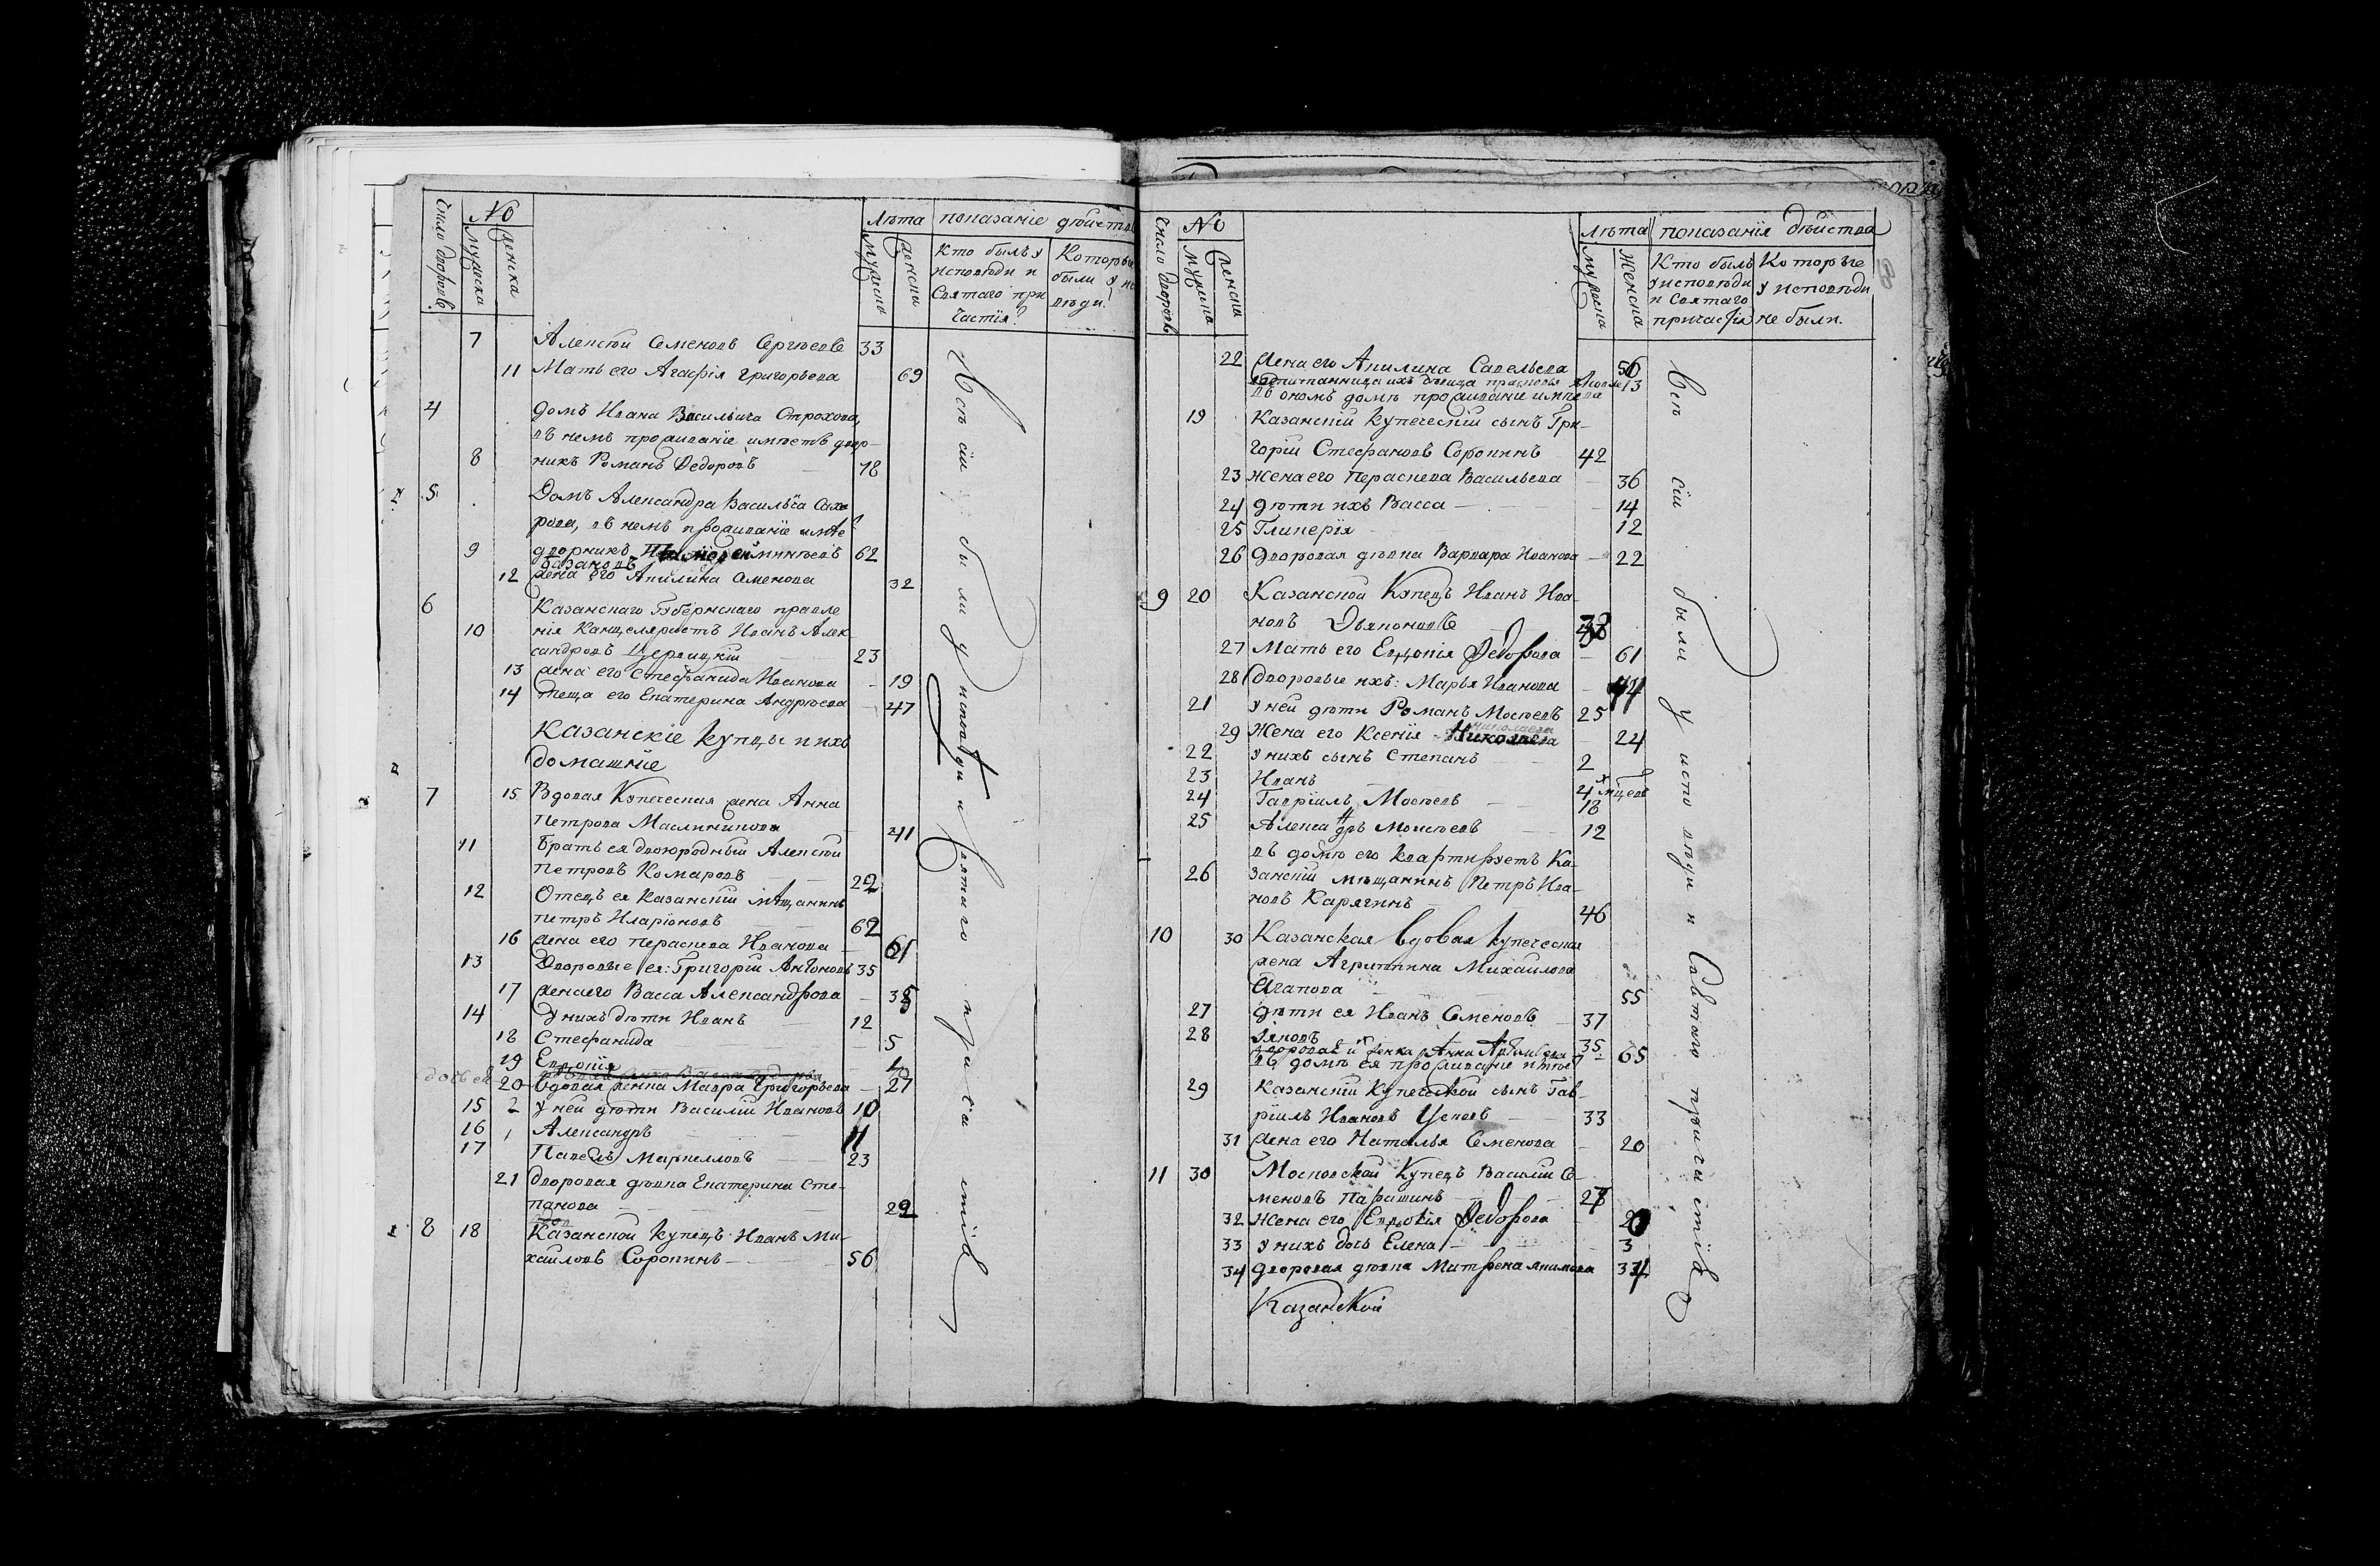 Число дворовъ.
№
мужеска
женска
Лѣта
мужеска
женска
показаніе дѣйства
Кто былъ у
исповѣди и
Святаго при
частія.
Которые
были у ис
вѣди.
7 Алексѣй Семеновъ Сергѣевъ 33
11 Мать его Агафія Григорьева 69
4 домъ Ивана Васильича Строхова,
въ немъ проживаніе имѣетъ двор-
8 никъ Романъ Ѳедоровъ 18
5 Домъ Александра Васильича Саха
рова, въ немъ проживаніе имѣе
9 дворникъ 62
Казановъ
12 жена его Акилина Семенова 32
6 Казанскаго Губернскаго правле
10 нія Канцеляристъ Иванъ Алек-
сандровъ 23
13 жена его Стефанида Иванова 19
14 теща его Екатерина Андрѣева 47
Казанскіе купцы и ихъ
домашніе
7 15 Вдовая Купеческая жена Анна
Петрова Масленикова 41
11 Братъ ея двоюродный Алексѣй
Петровъ Комаровъ 22
12 Отецъ ея Казанскій мѣщанинъ
петръ Иларіоновъ 62
16 жена его Параскева Иванова 61
13 Дворовые ея: Григорій Антоновъ 35
17 жена его Васса Александрова 35
14 у нихъ дѣти Иванъ 12
18 Стефанида 5
19 Евдокія
20 вдовая женка Мавра Григорьева 27
15 2 у ней дѣти Василій Ивановъ 10
16 1 Александръ 11
17 Павелъ Маркелловъ 23
21 дворовая дѣвка Екатерина Сте-
панова 29
8 18 Казанской купецъ Иванъ Ми-
хайловъ Сорокинъ 56
Всѣ сіи были у исповѣди и Святаго причастія
Число дворовъ
№
мужеска
женска
Лѣта
мужеска
Женска
показанія дѣйства
Кто былъ
у исповѣди
и Святаго
причастія
Которые
у исповѣди
не были.
22 Жена его Акилина Савельева 50
воспитанница ихъ дѣвица прасковья 13
въ ономъ домѣ проживаніе имѣ
19 Казанскій купеческій сынъ Гри-
горій Стефановъ Сорокинъ 42
23 Жена его Параскева Васильева 36
24 дѣти ихъ Васса 14
25 Гликерія 12
26 Дворовая дѣвка Варвара Иванова 22
9 20 Казанской Купецъ Иванъ Ива-
новъ Дьяконовъ 38
27 Мать его Евдокія Ѳедорова 61
28 дворовые ихъ: Марья Иванова 44
21 у ней дѣти Романъ Мосѣевъ 25
29 Жена его Ксенія Николаева 24
22 у нихъ сынъ Степанъ 2
23 Иванъ 4 х мѣцевъ
24 Гавріилъ Мосѣевъ 18
25 Александръ Моисѣевъ 12
въ домѣ его квартируетъ Ка-
26 занскій мѣщанинъ Петръ Ива-
новъ Карягинъ 46
10 30 Казанская вдовая купеческая
жена Агриппина Михайлова
Агапова 55
27 дѣти ея Иванъ Семеновъ 37
28 Яковъ 35
дворовая ихъ женка Анна 65
въ домѣ ея проживаніе имѣе
29 Казанскій Купеческой сынъ Гав-
ріилъ Ивановъ Усковъ 33
31 жена его Наталья Семенова 20
11 30 Московской Купецъ Василій Се-
меновъ Парашинъ 27
32 Жена его Евдокія Ѳедорова 20
33 у нихъ дочь Елена 3
34 дворовая дѣвка Матрена Якимова 34
Казанской
Всѣ сіи были у исповѣди и Святаго причастія